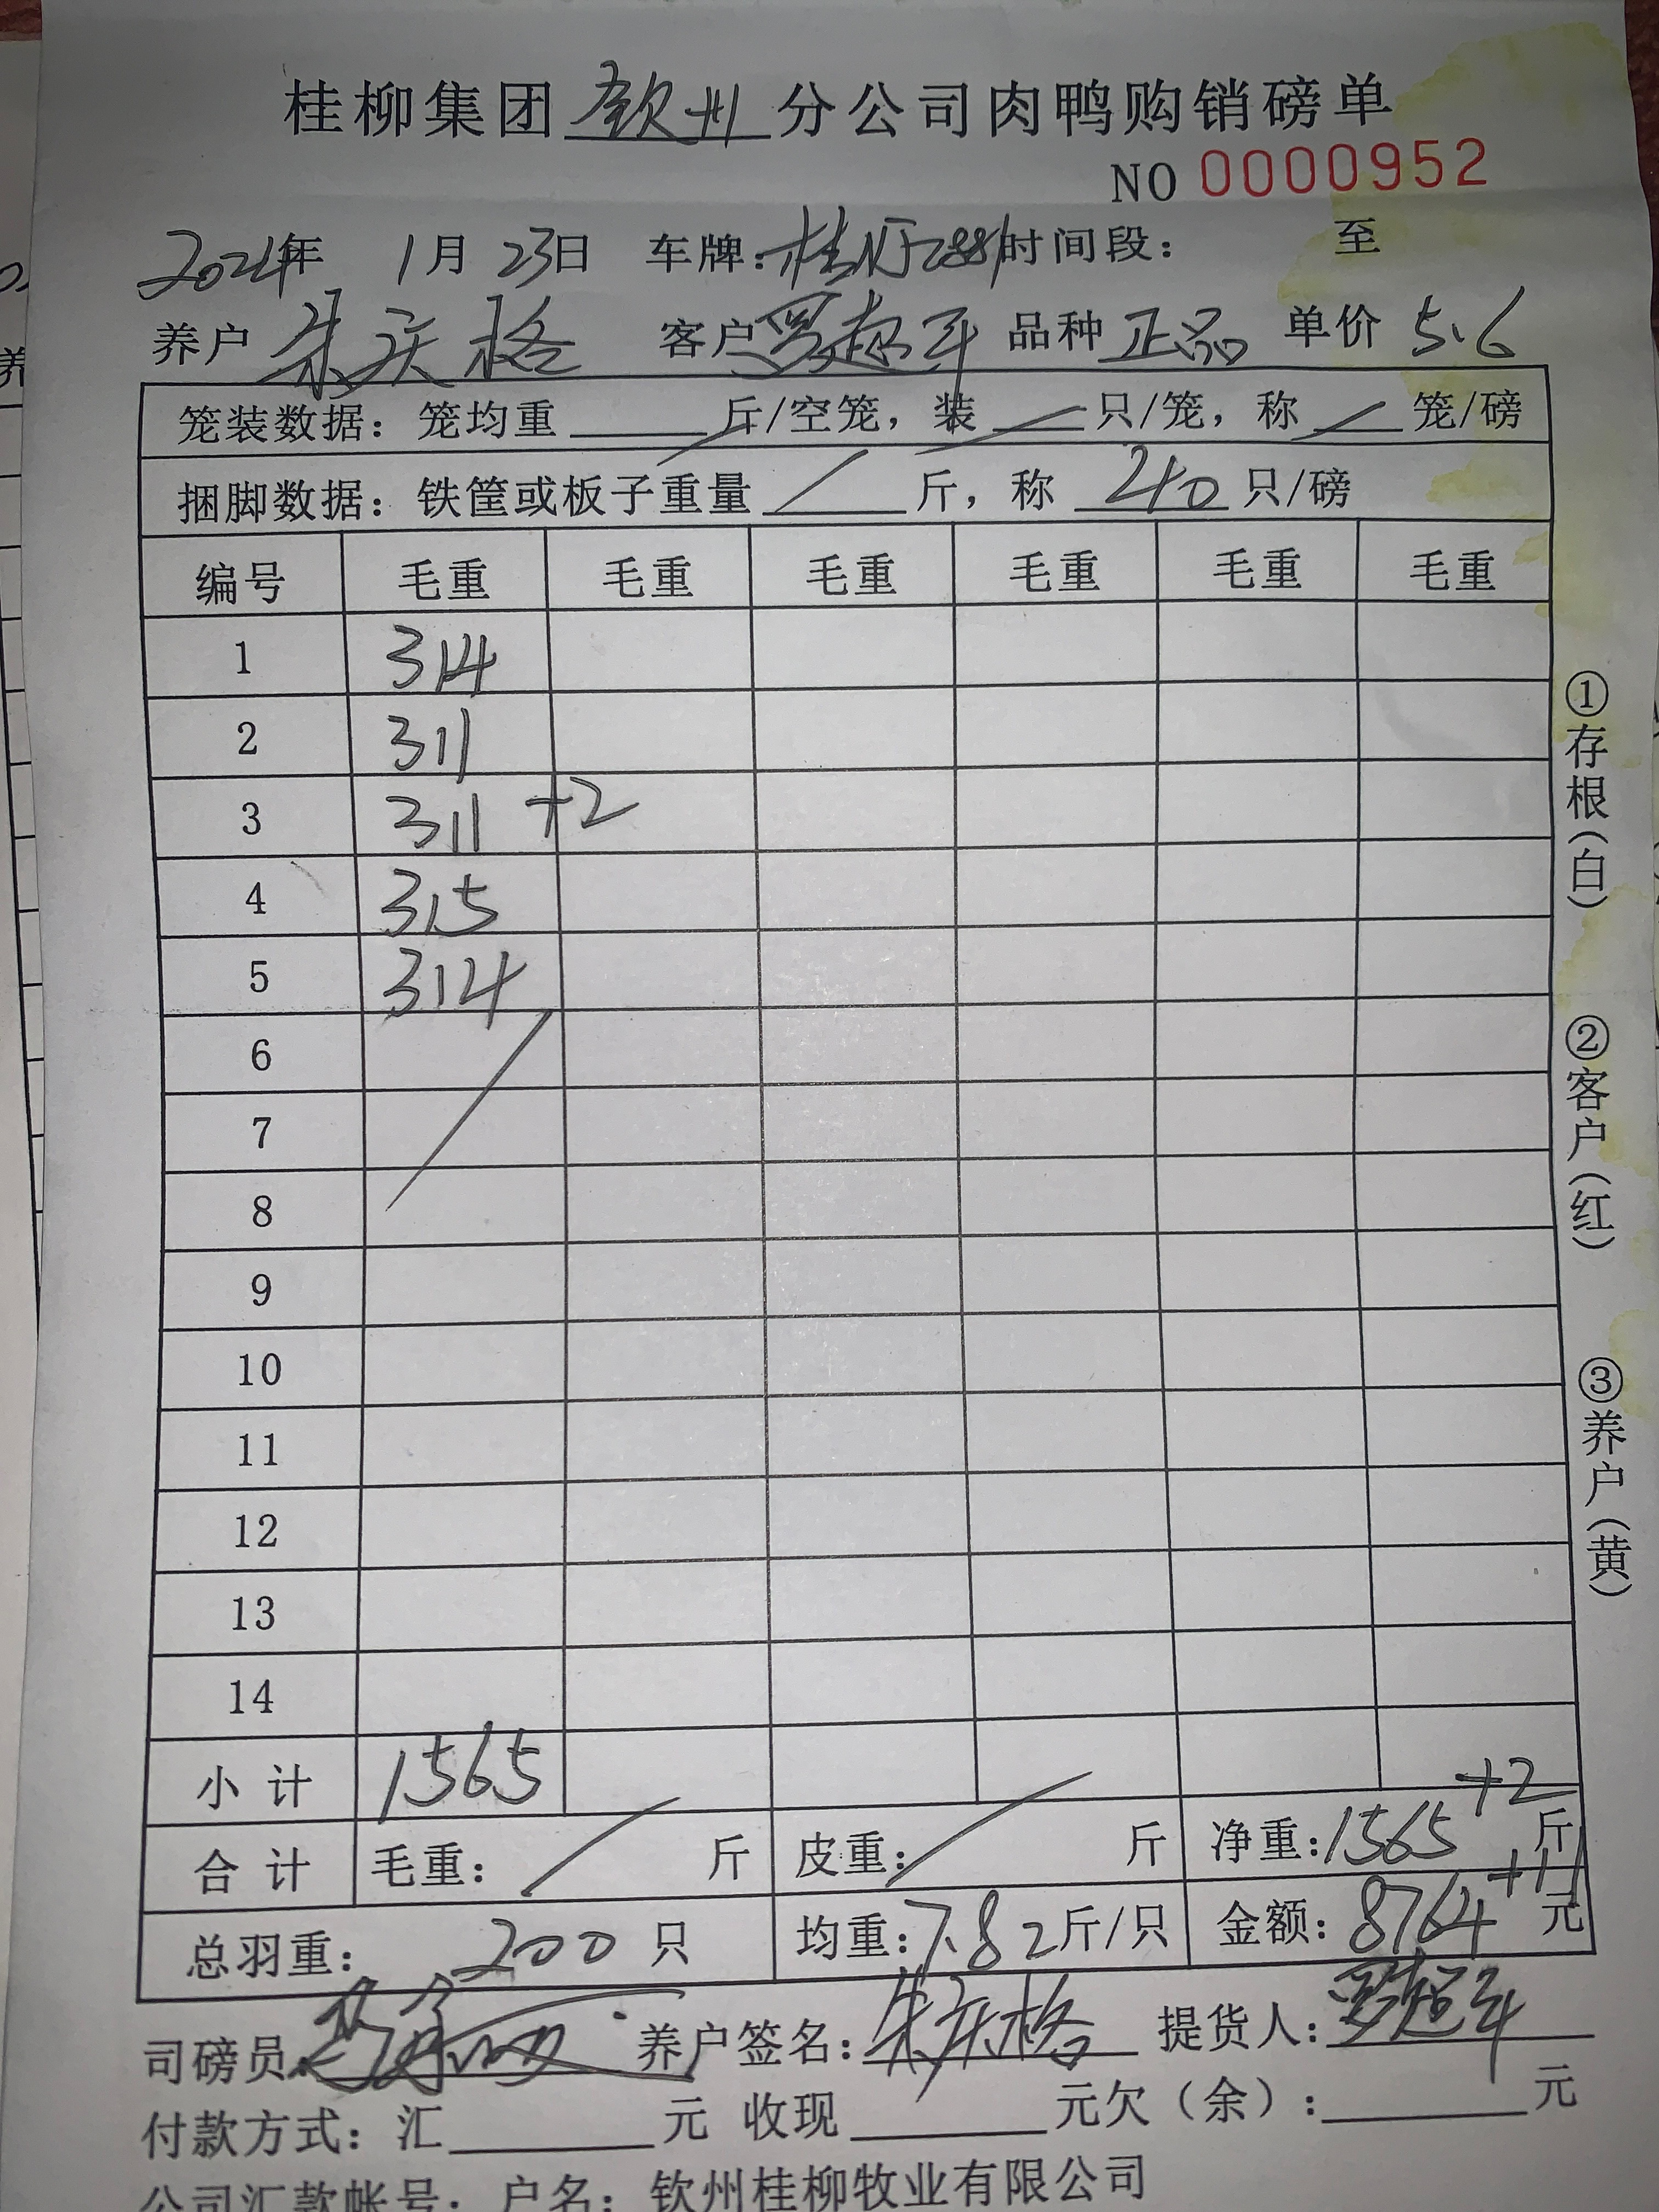 桂柳集团 钦州 分公司肉鸭购销磅单
NO 0000952
2024年 1月 23日 车牌: 时间段: 至
养户 朱庆格 客户 罗超年 品种 正品 单价 5.6
笼装数据: 笼均重 / 斤/空笼, 装 / 只/笼, 称 / 笼/磅
捆脚数据: 铁筐或板子重量 / 斤, 称 40 只/磅
编号 毛重 毛重 毛重 毛重 毛重 毛重
1 314
2 311
3 311 +2
4 315
5 314
6
7
8
9
10
11
12
13
14
小计 1565
合计 毛重: / 斤 皮重: / 斤 净重: 1565 +2 斤
总羽重: 200 只 均重: 7.82 斤/只 金额: 8764 +11 元
司磅员: 养户签名: 朱庆格 提货人: 罗超年
付款方式: 汇 元 收现 元欠(余): 元
公司汇款帐号: 户名: 钦州桂柳牧业有限公司
①存根(白)
②客户(红)
③养户(黄)